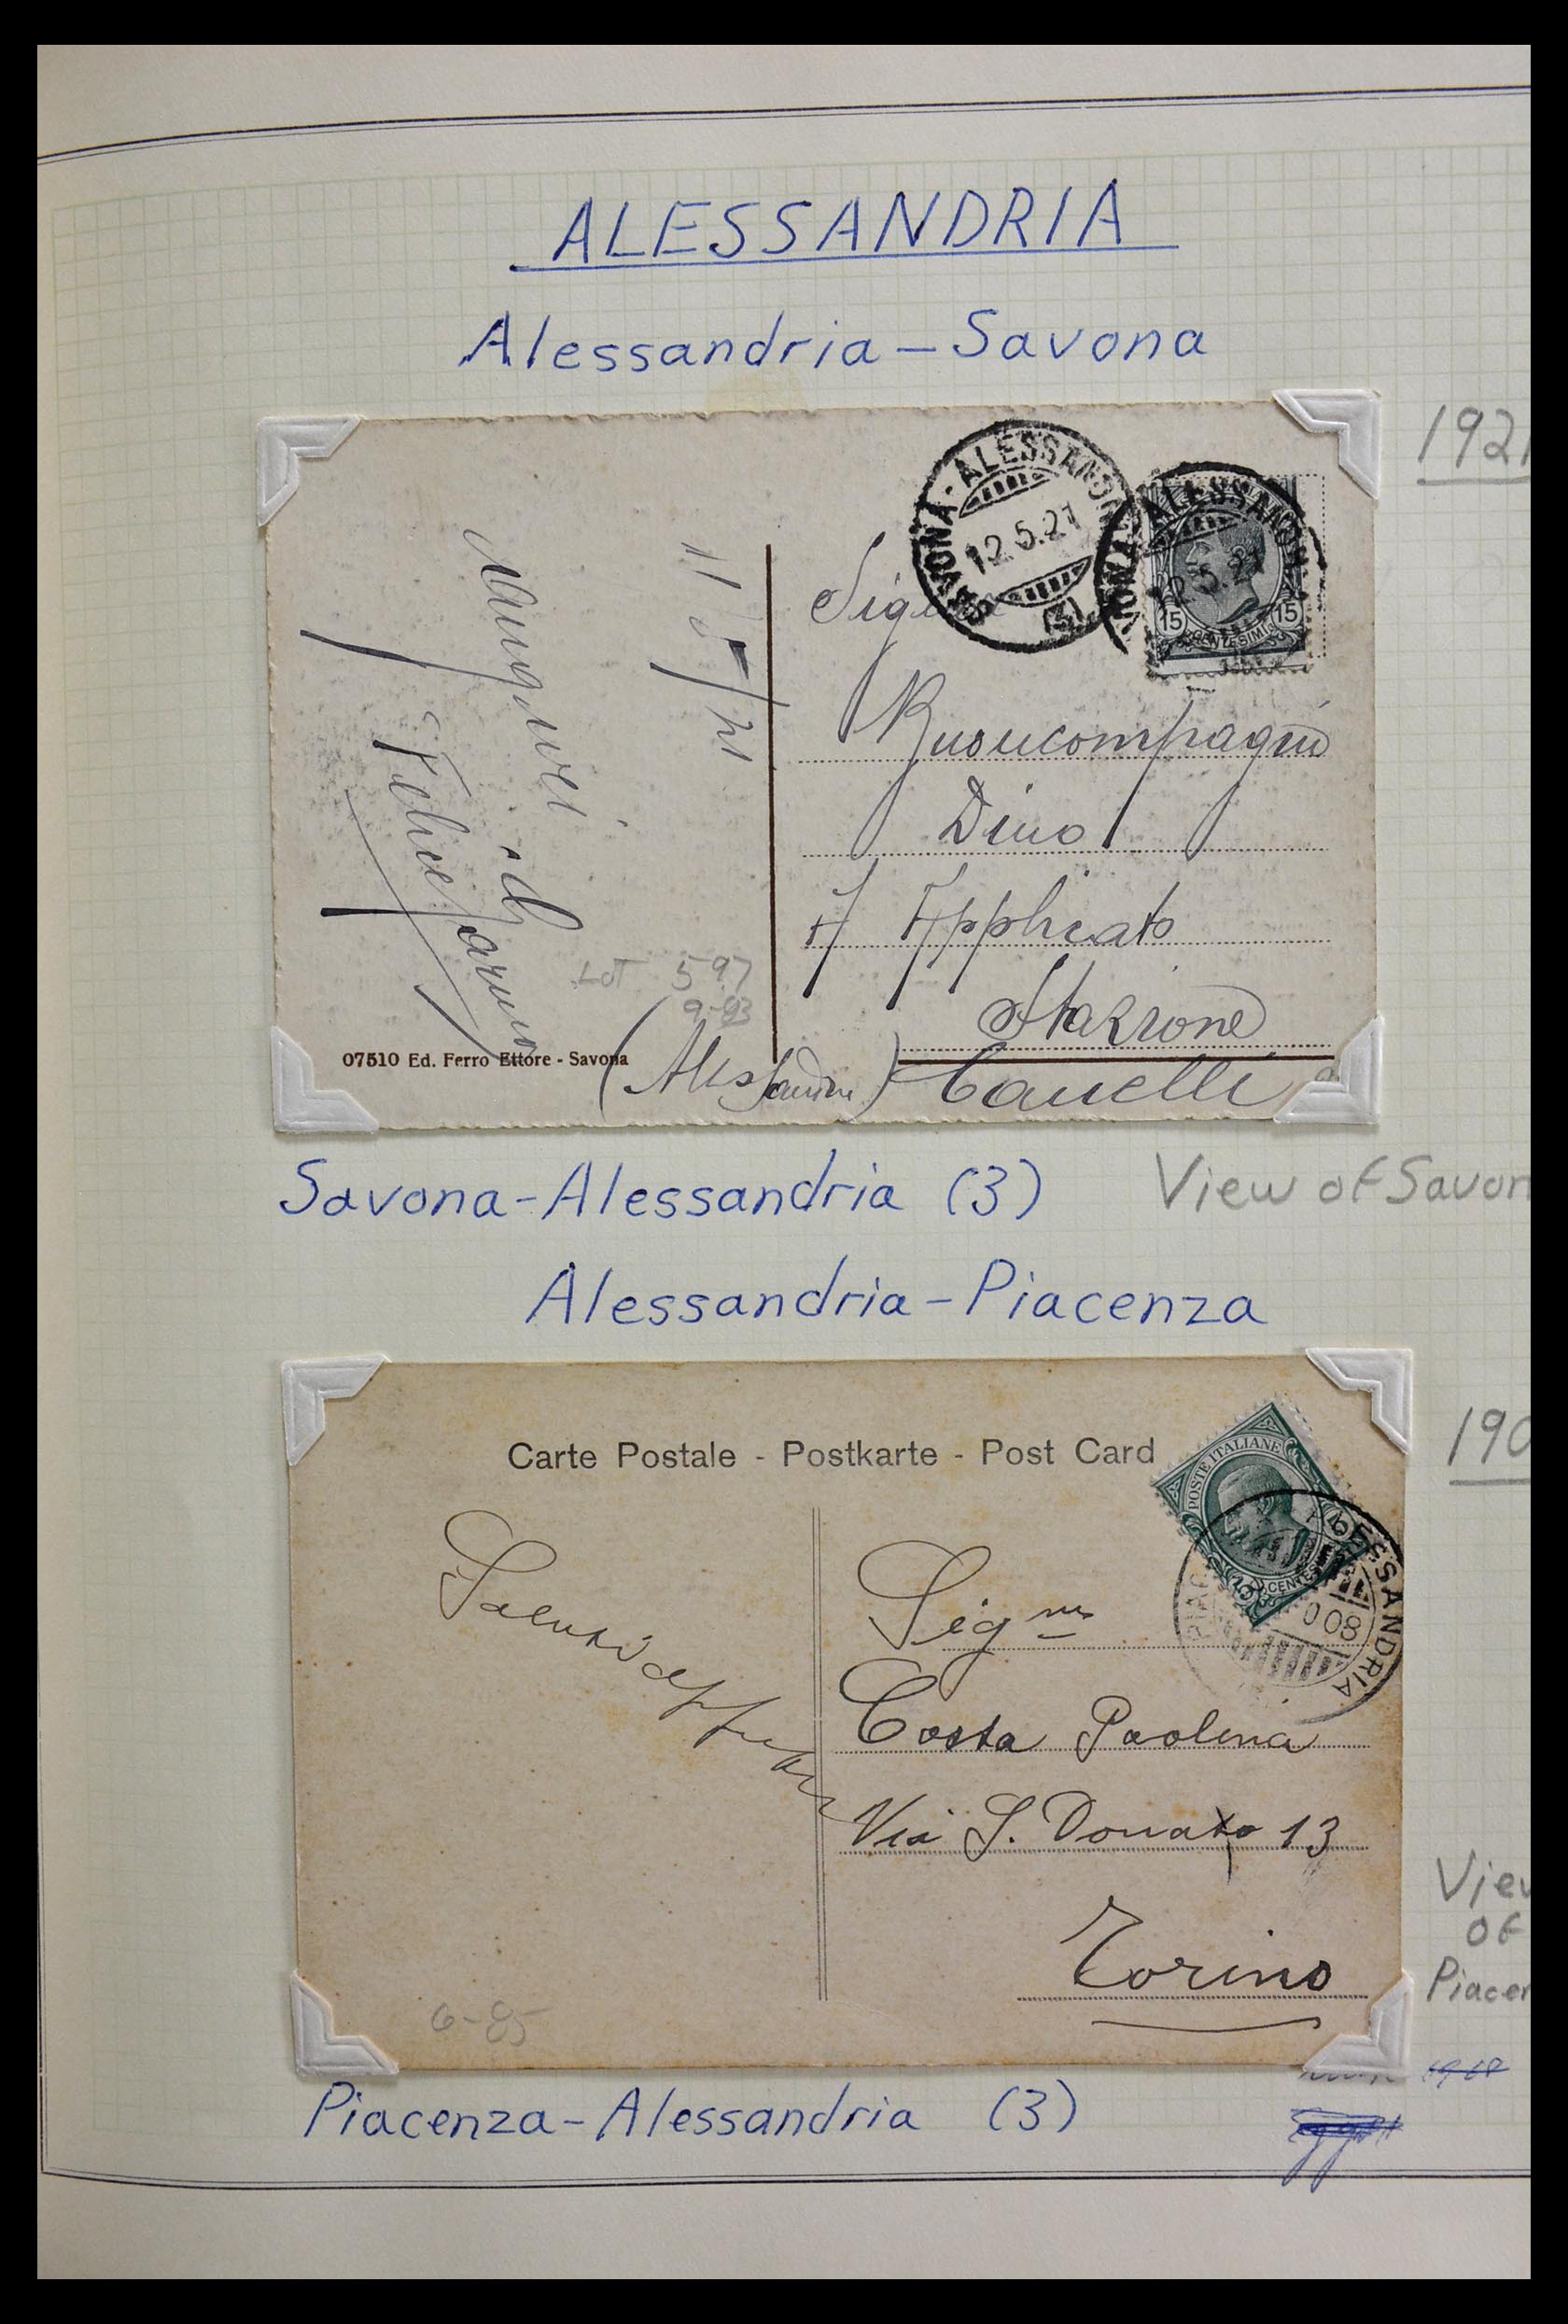 ALESSANDRIA
Alessandria - Savona
1921
SAVONA - ALESSANDRIA
12.5.21
(3)
ALESSANDR
2.5.21
15 15
CENTESIMI
11/5/21
Felice
Buoncompagni
Dino
Applicato
Stazione
(Alessandria) Canelli
Lot 597
9-93
07510 Ed. Ferro Ettore - Savona
Savona-Alessandria (3)
View of Savon
Alessandria-Piacenza
190
Carte Postale - Postkarte - Post Card
POSTE ITALIANE
5 CENTESIMI 5
PIAC
ALESSANDRIA
08
Saluti
Sig
Costa Paolina
Via S. Donato 13
Torino
6-85
View
of
Piacen
Piacenza-Alessandria (3)